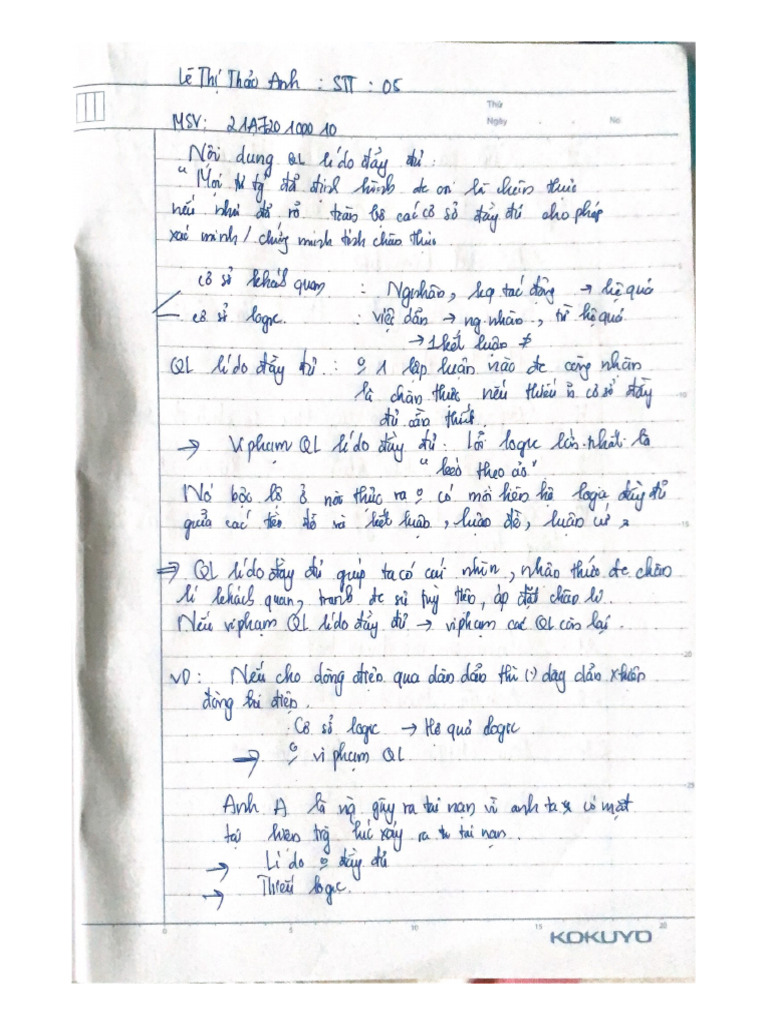 Lê Thị Thảo Anh : STT : 05
Thứ
Ngày . . No.
MSV: 21A720100010
Nội dung QL lí do đầy đủ :
" Mọi tư tg đã định hình đc coi là chân thực
nếu như đã rõ toàn bộ các cơ sở đầy đủ cho phép
xác minh / chứng minh tính chân thực
cơ sở khách quan : Ng nhân, sự tác động → hệ quả
cơ sở logic : việc dẫn → ng nhân, từ hệ quả
→ 1 kết luận ≠
QL lí do đầy đủ : 1 lập luận nào đc công nhận
là chân thực nếu thiếu cơ sở đầy
đủ cần thiết.
→ Vi phạm QL lí do đầy đủ : Lỗi logic lớn nhất là
" kéo theo ảo"
Nó bộc lộ ở nơi thực ra có mối liên hệ logic đầy đủ
giữa các tiền đề và kết luận, luận đề, luận cứ
⇒ QL lí do đầy đủ giúp ta có cái nhìn, nhận thức đc chân
lí khách quan, tránh đc sự tuỳ tiện, áp đặt chân lí.
Nếu vi phạm QL lí do đầy đủ → vi phạm các QL còn lại.
VD : Nếu cho dòng điện qua dây dẫn thì (·) dây dẫn xhiện
dòng điện.
Cơ sở logic → Hệ quả logic
→ vi phạm QL
Anh A là ng gây ra tai nạn vì anh ta có mặt
tại hiện trg lúc xảy ra tai nạn.
→ Lí do đầy đủ
→ Thiếu logic.
0 5 10 15 20
KOKUYO